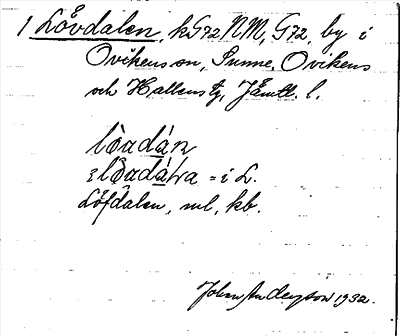 1 Lövdalen, kG72 NM, G72, by i
Ovikens sn, Sunne, Ovikens
och Hallens tg, Jämtl. l.
lòvdán
lòvdátra = i L.
Löfdalen, ml, kb.
John Anderzon 1932.